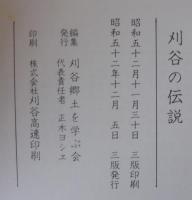 刈谷の伝説
昭和五十二年十一月三十日　三版印刷
昭和五十二年十二月　五日　三版発行
編集　刈谷郷土を学ぶ会
発行　代表責任者　正木ヨシエ
印刷　株式会社刈谷高速印刷